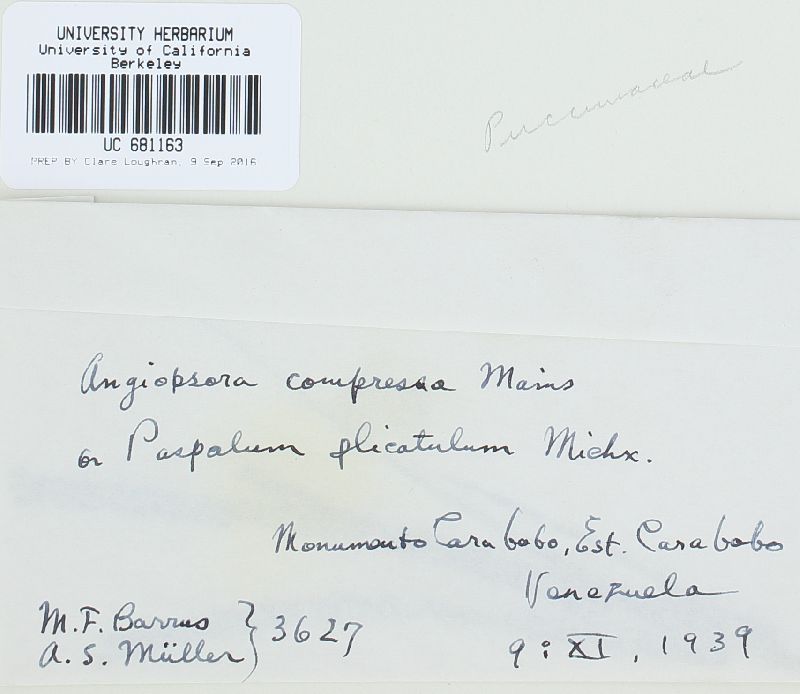 UNIVERSITY HERBARIUM
University of California
Berkeley
UC 681163
PREP BY Clare Loughran, 9 Sep 2016
Pucciniaceae
Angiopsora compressa Mains
on Paspalum plicatulum Michx.
Monumento Carabobo, Est. Carabobo
Venezuela
M.F. Barrus
A. S. Müller } 3627
9 : XI, 1939